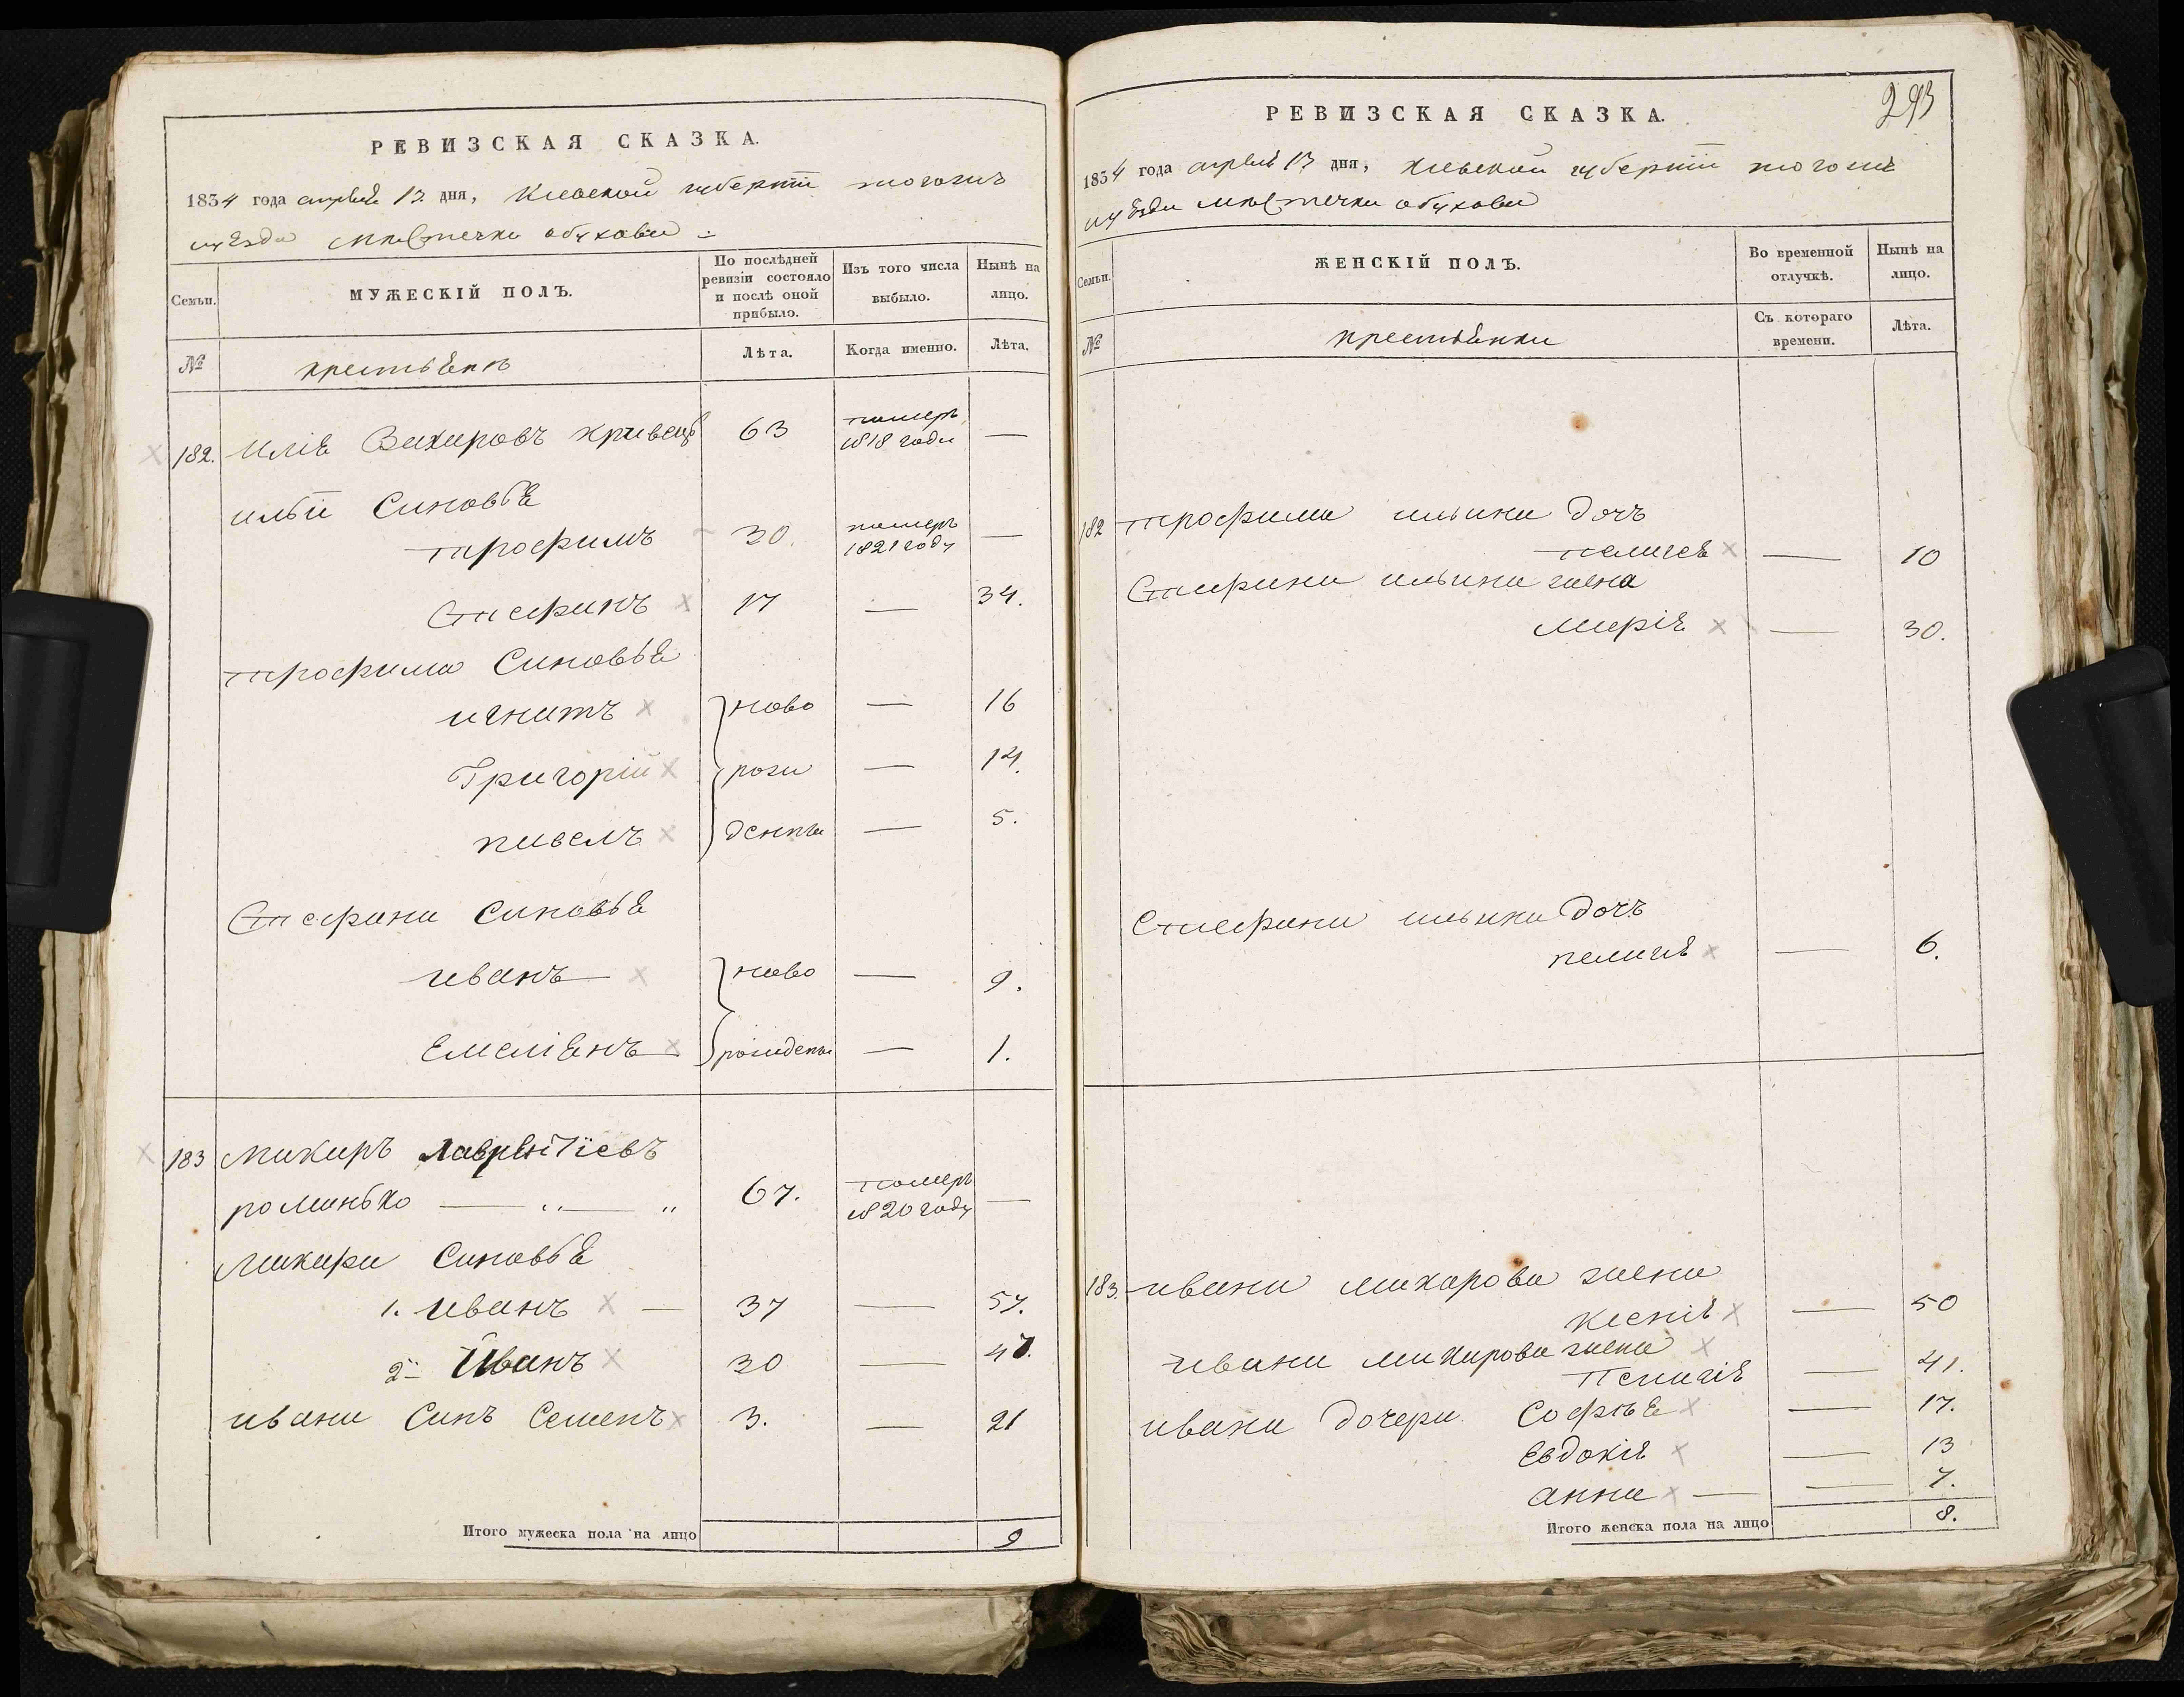 РЕВИЗСКАЯ СКАЗКА.
1834 года апреля 13 дня, Киевской губернїи тогожъ
уезда местечка обухова
Семьи.
МУЖЕСКІЙ ПОЛЪ.
По послѣдней ревизіи состояло и послѣ оной прибыло.
Изъ того числа выбыло.
Нынѣ на лицо.
№
крестьяня
Лѣта.
Когда именно.
Лѣта.
182. Илия Захаровъ кривецъ 63 померъ 1818 года —
ильи Синовья
трофимъ 30. померъ 1821 году —
Стефанъ 17 — 34.
трофима Синовья
игнатъ ново — 16
Григорій рож — 14.
павелъ денны — 5.
Стефана Синовья
иванъ ново — 9.
Емелиянъ рожденны — 1.
183 макаръ Лаврентїевъ
романько 67. померъ 1820 году —
макара Синовья
1. иванъ — 37 — 54.
2й Иванъ 30 — 47.
ивана Синъ Семенъ 3. — 21
Итого мужеска пола на лицо 9
293
РЕВИЗСКАЯ СКАЗКА.
1834 года апреля 13 дня, киевской губернїи тогожъ
уезда местечка обухова
Семьи.
ЖЕНСКІЙ ПОЛЪ.
Во временной отлучкѣ.
Нынѣ на лицо.
№
крестьянки
Съ котораго времени.
Лѣта.
182 трофима ильина дочъ
пелагея — 10
Стефана ильина жена
марія — 30.
Стефана ильина дочъ
пелагия — 6.
183. ивана макарова жена
ксенія — 50
ивана макарова жена
Пелагия — 41.
ивана дочери Софья — 17.
Евдокия — 13
анна — — 7.
Итого женска пола на лицо 8.